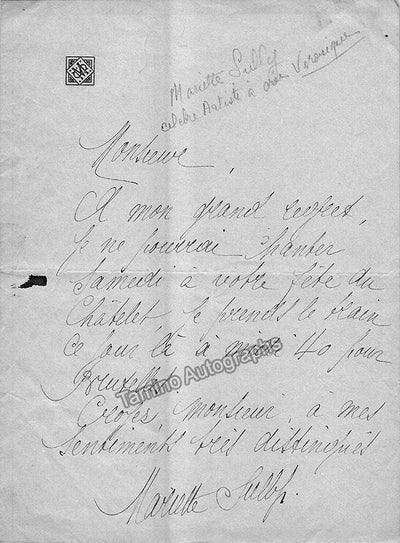 Mariette Sully
célèbre Artiste a créé Véronique
Monsieur,
A mon grand regret,
je ne pourrai chanter
Samedi à votre fête du
Châtelet, je prends le train
ce jour là à midi 40 pour
Bruxelles.
Croyez, Monsieur, à mes
sentiments très distingués
Mariette Sully.
Tamino Autographs